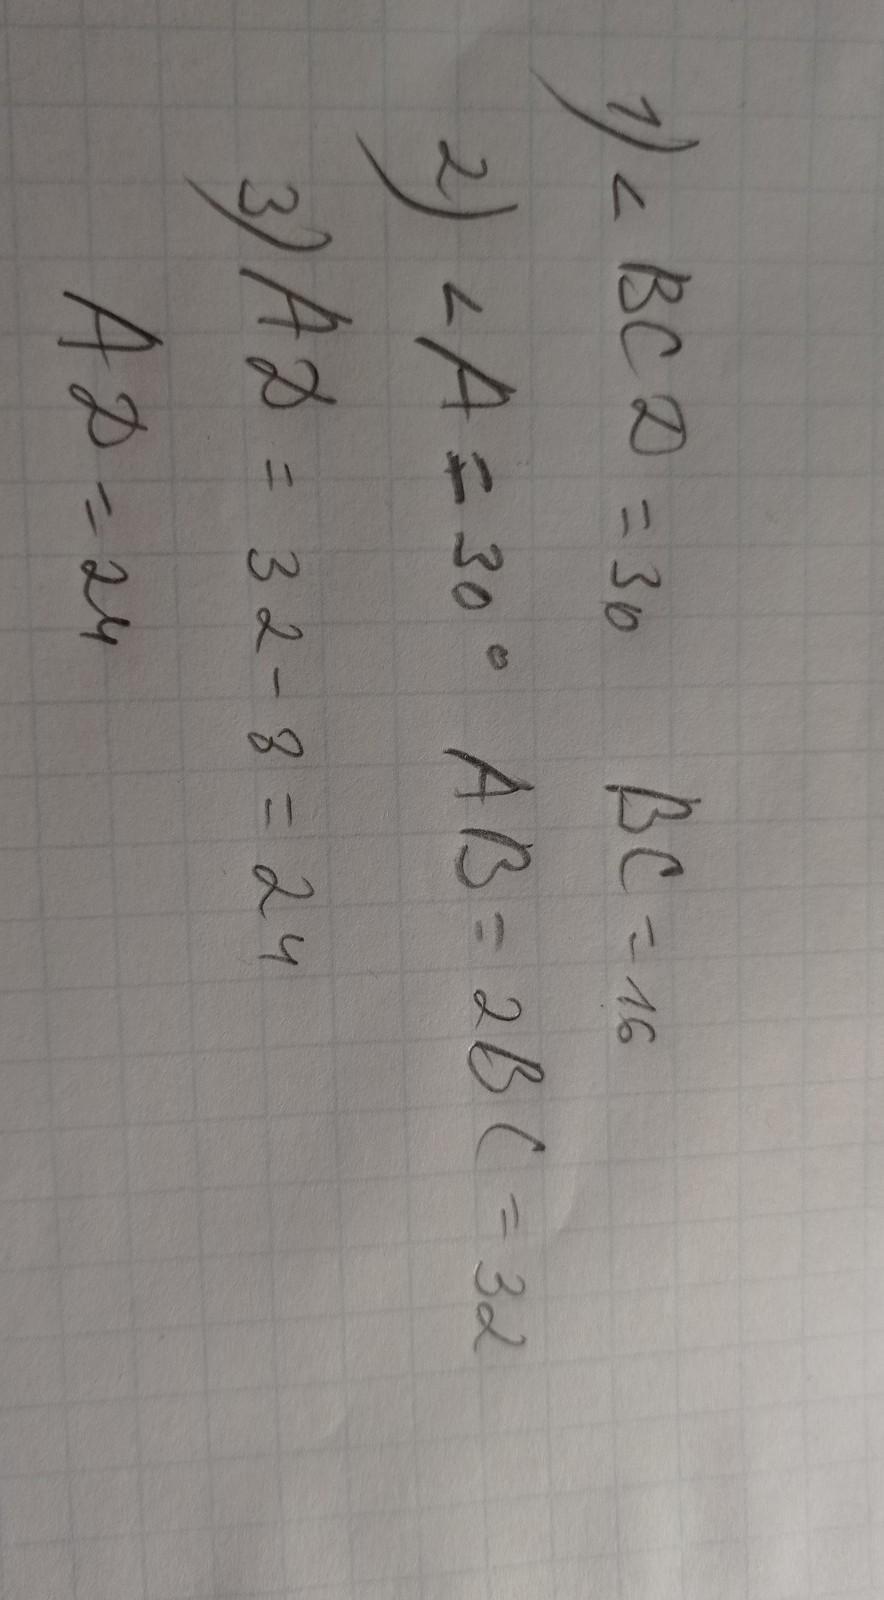 1) ∠ BCD = 30 BC = 16
2) ∠A = 30° AB = 2BC = 32
3) AD = 32 - 8 = 24
AD = 24